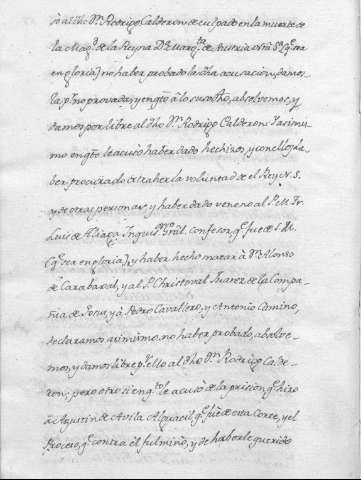 so al dho Dn. Rodrigo Calderon de culpado en la muerte de
la Magd. de la Reyna Da. Margta. de Austria ntra Sa. (qe sea
en gloria) no haber probado la dha acusacion, damos
la pr. no provada, y en qto à lo susodho, absolvemos, y
damos por libre al dho Dn. Rodrigo Calderon: Y asimis-
mo en qto. le acusò haber dado hechizos, y con ellos, ha-
ber procurado atraher la voluntad de el Rey N. S.
y de otras personas, y haber dado veneno al P. M. Fr.
Luis de Aliaga Inquisor. Gral. confesor, qe fue de S. M.
(qe sea en gloria), y haber hecho matar à Dn. Alonso
de Carabaxal, y al P. Christoval Suarez de la Compa-
ñia de Jesus, y à Pedro Cavallero, y Antonio Camino,
declaramos asimismo, no haber probado, absolve-
mos, y damos libre pr. ello al dho Dn. Rodrigo Calde-
ron; pero otro si en qto. le acusò de la prision qe hizo
à Agustin de Avila Alguacil, qe fuè de esta Corte, y el
Proceso, qe contra èl fulminò, y de haberle querido